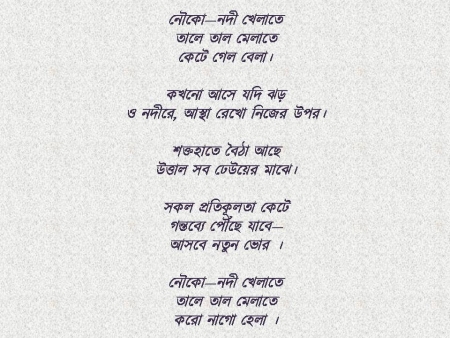 নৌকো—নদী খেলাতে
তালে তাল মেলাতে
কেটে গেল বেলা।
কখনো আসে যদি ঝড়
ও নদীরে, আস্থা রেখো নিজের উপর।
শক্তহাতে বৈঠা আছে
উত্তাল সব ঢেউয়ের মাঝে।
সকল প্রতিকূলতা কেটে
গন্তব্যে পৌঁছে যাবে—
আসবে নতুন ভোর ।
নৌকো—নদী খেলাতে
তালে তাল মেলাতে
করো নাগো হেলা ।